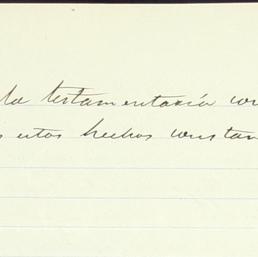 la testamentaría con
estos hechos constan